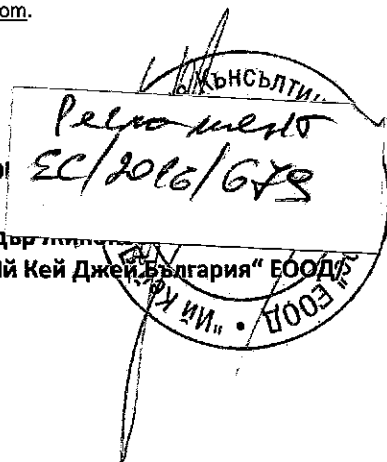 om.
КЪНСЪЛТИ
Регламент
ЕС/2016/679
ЙЙ Кей Джей България“ ЕООД/
"ИЙ КЕЙ
" ЕООД •